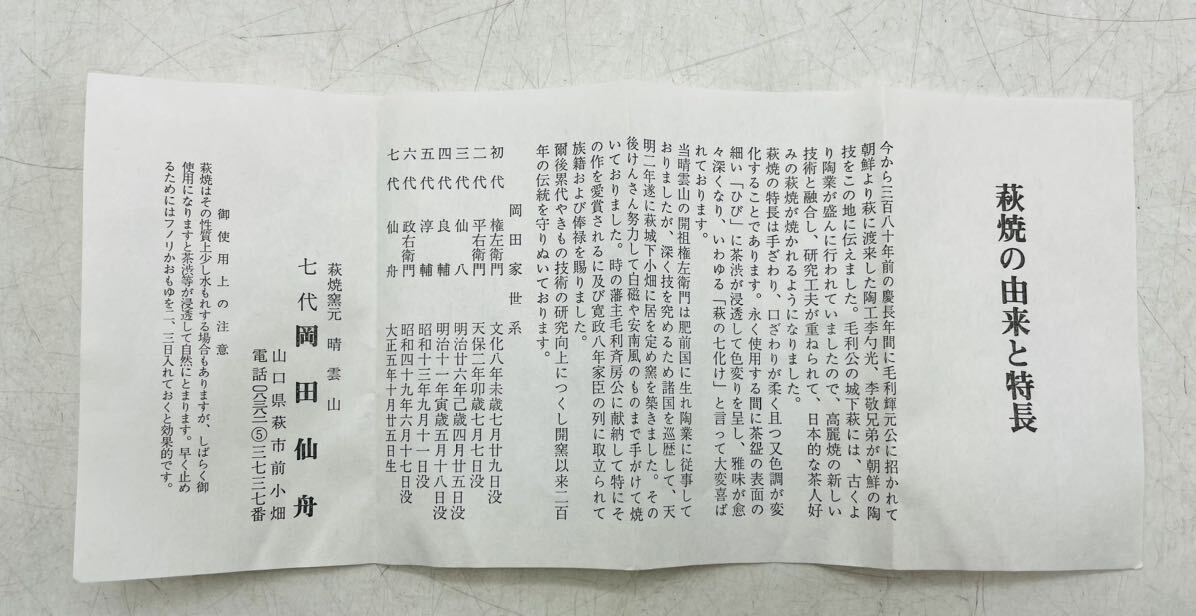 萩焼の由来と特長
今から三百八十年前の慶長年間に毛利輝元公に招かれて
朝鮮より萩に渡来した陶工李勺光、李敬兄弟が朝鮮の陶
技をこの地に伝えました。毛利公の城下萩には、古くよ
り陶業が盛んに行われていましたので、高麗焼の新しい
技術と融合し、研究工夫が重ねられて、日本的な茶人好
みの萩焼が焼かれるようになりました。
萩焼の特長は手ざわり、口ざわりが柔く且つ又色調が変
化することであります。永く使用する間に茶盌の表面の
細い「ひび」に茶渋が浸透して色変りを呈し、雅味が愈
々深くなり、いわゆる「萩の七化け」と言って大変喜ば
れております。
当晴雲山の開祖権左衛門は肥前国に生れ陶業に従事して
おりましたが、深く技を究めるため諸国を巡歴して、天
明二年遂に萩城下小畑に居を定め窯を築きました。その
後けんさん努力して白磁や安南風のものまで手がけて焼
いておりました。時の藩主毛利斉房公に献納して特にそ
の作を愛賞されるに及び寛政八年家臣の列に取立られて
族籍および俸禄を賜りました。
爾後累代やきもの技術の研究向上につくし開窯以来二百
年の伝統を守りぬいております。
岡田家世系
初代 権左衛門 文化八年未歳七月廿九日没
二代 平右衛門 天保二年卯歳七月七日没
三代 仙八 明治廿六年己歳四月廿五日没
四代 良輔 明治十一年寅歳五月十八日没
五代 淳輔 昭和十三年九月十一日没
六代 政右衛門 昭和四十九年六月十七日没
七代 仙舟 大正五年十月廿五日生
萩焼窯元 晴雲山
七代 岡田仙舟
山口県萩市前小畑
電話〇八三八二⑤三七三七番
御使用上の注意
萩焼はその性質上少し水もれする場合もありますが、しばらく御
使用になりますと茶渋等が浸透して自然にとまります。早く止め
るためにはフノリかおもゆを二、三日入れておくと効果的です。